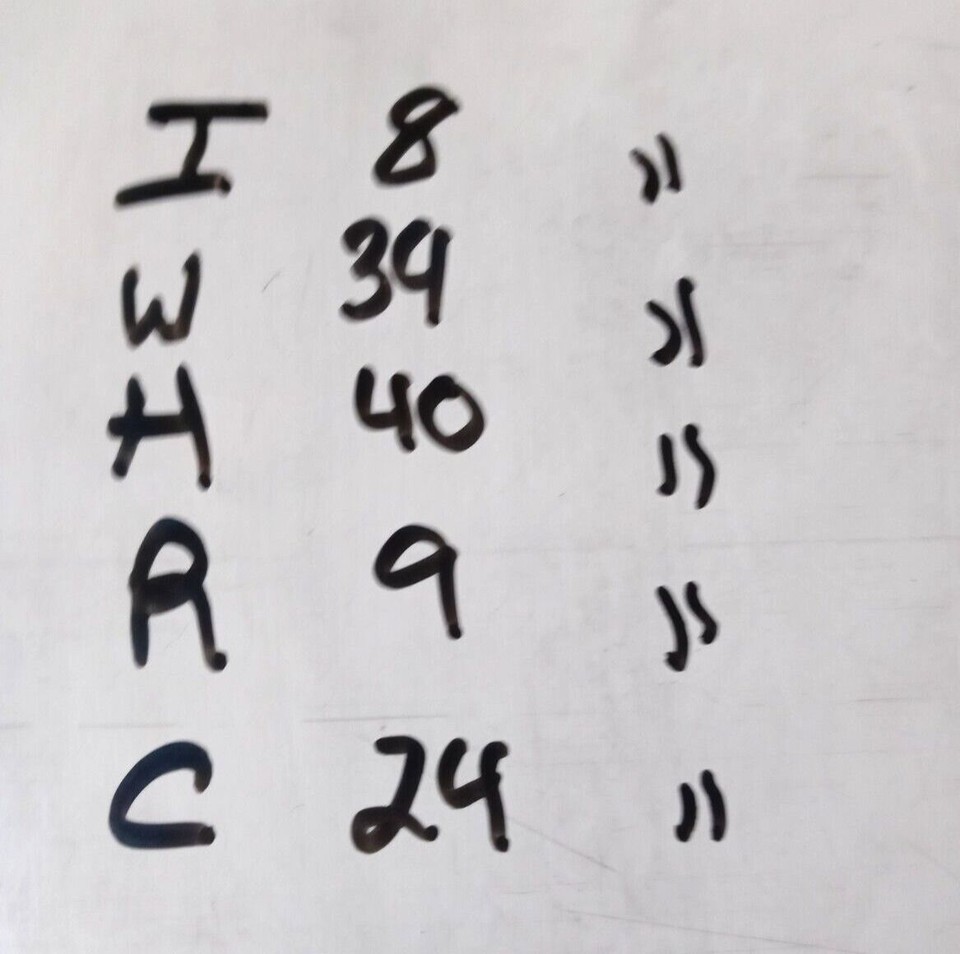 I 8 "
W 34 "
H 40 "
R 9 "
C 24 "